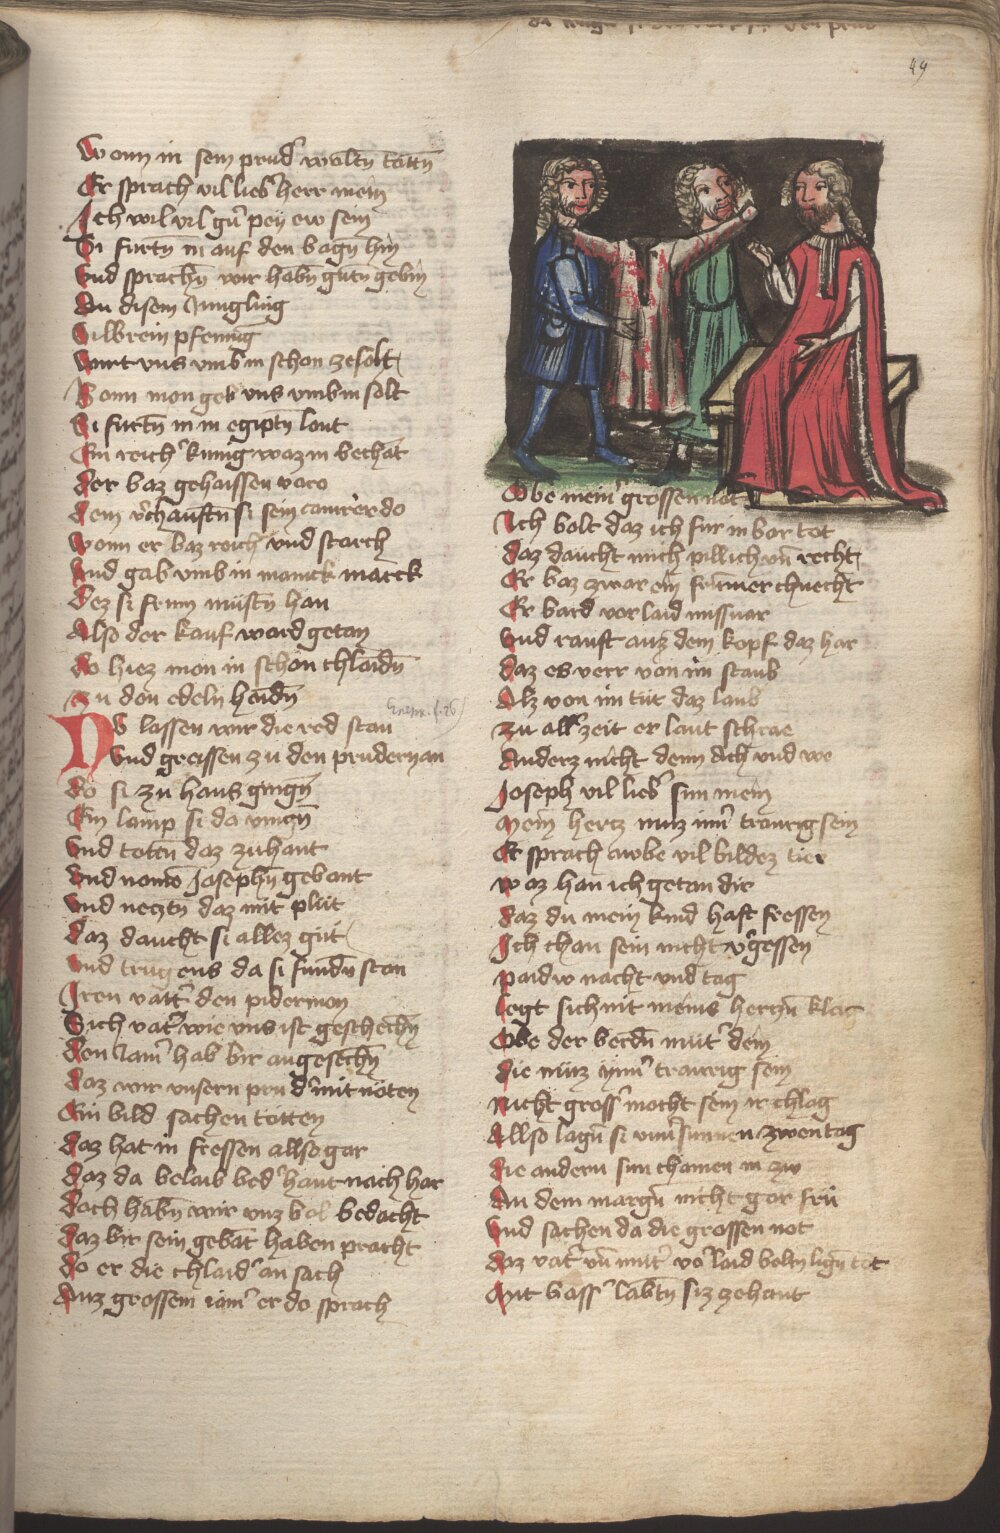 49
Wonn in sein prud' wolltn tottn
Er sprach vil lieb' herr mein
Ich wil vil gn' pey ew sein
Si furtn in auf den bagn hin
Vnd sprachn wir habn guten gebin
An disem Jungling
Silbrein pfennig
wirt vns vmb in schon zesolt
Wonn mon geb vns vmb in solt
Si furtn in in egiptn lont
Ein reich' kunig waz in bechat
der baz gehaissen varo
dem v'chauftn si sein camrer do
wonn er baz reich vnd starch
Vnd gab vmb in manick marck
dez si frum mustn han
Also der kauf ward getan
do hiez mon in schon chlaidn
zu den edeln haidn
Nv lassen wir die red stan
Vnd greiffen zu den prudern an
do si zu haus gingn
Ein lamp si da vingn
Vnd totten daz zuhant
Vnd nomen Josephn gebant
Vnd necztn daz mit plut
daz daucht si allez gut
Vnd trugens da si fundn stan
Iren vatt' den pidermon
Sich vat' wie vns ist geschechn
den Jam' hab bir angesechn
daz wir vnsern prud' mit noten
Ein bild sachen totten
daz hat in fressen allso gar
daz da belaib bed' haut nach har
doch habn wir vnz bol bedacht
daz bir sein gebat haben pracht
do er die chlaid' an sach
Auz grossem iam' er do sprach
Obe mein' grossen not
Ich bolt daz ich fur in bar tot
daz daucht mich pillich vn recht
Er baz zwar ein frumer chnecht
Er bard vor laid missuar
Vnd rauft auz dem kopf daz har
daz es verr von im staub
Alz von im tut daz laub
zu all' zeit er laut schrae
Anderz nicht denn Ach vnd we
Joseph vil lieb' sun mein
Mein hertz muz im' traurig sein
Er sprach awbe vil bildez tier
waz han ich getan dir
daz du mein kind hast fressen
Ich chan sein nicht v'gessen
paidw nacht vnd tag
legt sich nit meins herczn klag
Obe der berdn mut' dein
die muz ymm' trawrig sein
nicht gross' mocht sein ir chlag
Allso lagn si vnuersunnen zwen tag
die andern sun chamen in zw
An dem margn nicht gar fru
Vnd sachen da die grossen not
daz vat' vn mut' vo' laid boltn lign tot
Mit bass' labtn si zehant